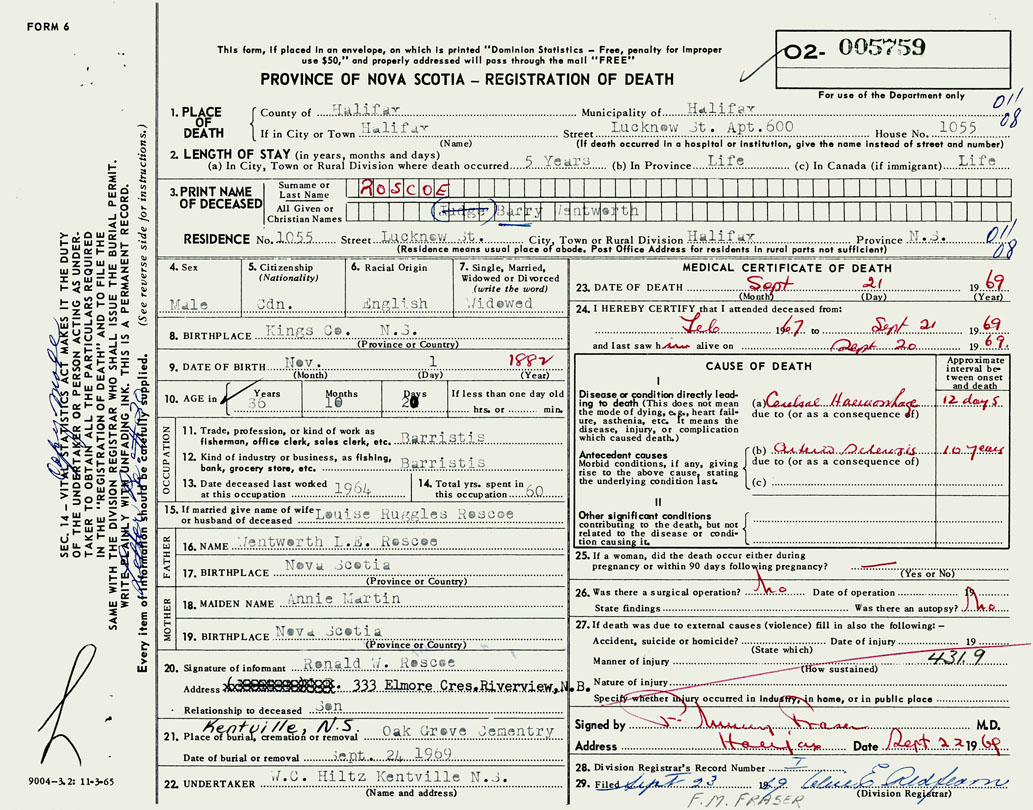 FORM 6
This form, if placed in an envelope, on which is printed "Dominion Statistics – Free, penalty for improper
use $50," and properly addressed will pass through the mail "FREE"
PROVINCE OF NOVA SCOTIA – REGISTRATION OF DEATH
O2- 005759
For use of the Department only
011
08
1. PLACE OF DEATH
County of Halifax Municipality of Halifax
If in City or Town Halifax Street Lucknow St. Apt.600 House No. 1055
(Name) (If death occurred in a hospital or institution, give the name instead of street and number)
2. LENGTH OF STAY (in years, months and days)
(a) In City, Town or Rural Division where death occurred 5 Years (b) In Province Life (c) In Canada (if immigrant) Life
3. PRINT NAME OF DECEASED
Surname or Last Name ROSCOE
All Given or Christian Names Judge Barry Wentworth
RESIDENCE No. 1055 Street Lucknow St. City, Town or Rural Division Halifax Province N.S.
011
08
(Residence means usual place of abode. Post Office Address for residents in rural parts not sufficient)
4. Sex
Male
5. Citizenship
(Nationality)
Cdn.
6. Racial Origin
English
7. Single, Married,
Widowed or Divorced
(write the word)
Widowed
8. BIRTHPLACE Kings Co. N.S.
(Province or Country)
9. DATE OF BIRTH Nov. 1 1882
(Month) (Day) (Year)
10. AGE in Years Months Days If less than one day old
86 10 20 hrs. or min.
OCCUPATION
11. Trade, profession, or kind of work as
fisherman, office clerk, sales clerk, etc. Barristis
12. Kind of industry or business, as fishing,
bank, grocery store, etc. Barristis
13. Date deceased last worked
at this occupation 1964
14. Total yrs. spent in
this occupation 60
15. If married give name of wife
or husband of deceased Louise Ruggles Roscoe
FATHER
16. NAME Wentworth L.E. Roscoe
17. BIRTHPLACE Nova Scotia
(Province or Country)
MOTHER
18. MAIDEN NAME Annie Martin
19. BIRTHPLACE Nova Scotia
(Province or Country)
20. Signature of informant Ronald W. Roscoe
Address 333 Elmore Cres.Riverview,N.B.
Relationship to deceased Son
Kentville, N.S.
21. Place of burial, cremation or removal Oak Grove Cementry
Date of burial or removal Sept. 24 1969
22. UNDERTAKER W.C. Hiltz Kentville N.S.
(Name and address)
MEDICAL CERTIFICATE OF DEATH
23. DATE OF DEATH Sept 21 1969
(Month) (Day) (Year)
24. I HEREBY CERTIFY that I attended deceased from:
Feb 1967 to Sept 21 1969
and last saw him alive on Sept 20 1969.
CAUSE OF DEATH
Approximate
interval be-
tween onset
and death
I
Disease or condition directly lead-
ing to death (This does not mean
the mode of dying, e.g., heart fail-
ure, asthenia, etc. It means the
disease, injury, or complication
which caused death.)
(a) Cerebral Haemorrhage 12 days
due to (or as a consequence of)
Antecedent causes
Morbid conditions, if any, giving
rise to the above cause, stating
the underlying condition last.
(b) Arterio Sclerosis 10 years
due to (or as a consequence of)
(c)
II
Other significant conditions
contributing to the death, but not
related to the disease or condi-
tion causing it.
25. If a woman, did the death occur either during
pregnancy or within 90 days following pregnancy?
(Yes or No)
26. Was there a surgical operation? No Date of operation 19
State findings Was there an autopsy? No
27. If death was due to external causes (violence) fill in also the following: –
Accident, suicide or homicide? Date of injury 19
(State which)
Manner of injury 431.9
(How sustained)
Nature of injury
Specify whether injury occurred in industry, in home, or in public place
Signed by F. Murray Fraser M.D.
Address Halifax Date Sept 22 1969
28. Division Registrar's Record Number I
29. Filed Sept 23 1969
(Division Registrar)
F.M. FRASER
SEC. 14 – VITAL STATISTICS ACT MAKES IT THE DUTY
OF THE UNDERTAKER OR PERSON ACTING AS UNDER-
TAKER TO OBTAIN ALL THE PARTICULARS REQUIRED
IN THE "REGISTRATION OF DEATH" AND TO FILE THE
SAME WITH THE DIVISION REGISTRAR WHO SHALL ISSUE THE BURIAL PERMIT.
WRITE PLAINLY WITH UNFADING INK. THIS IS A PERMANENT RECORD.
Every item of information should be carefully supplied. (See reverse side for instructions.)
9004-3.2: 11-3-65